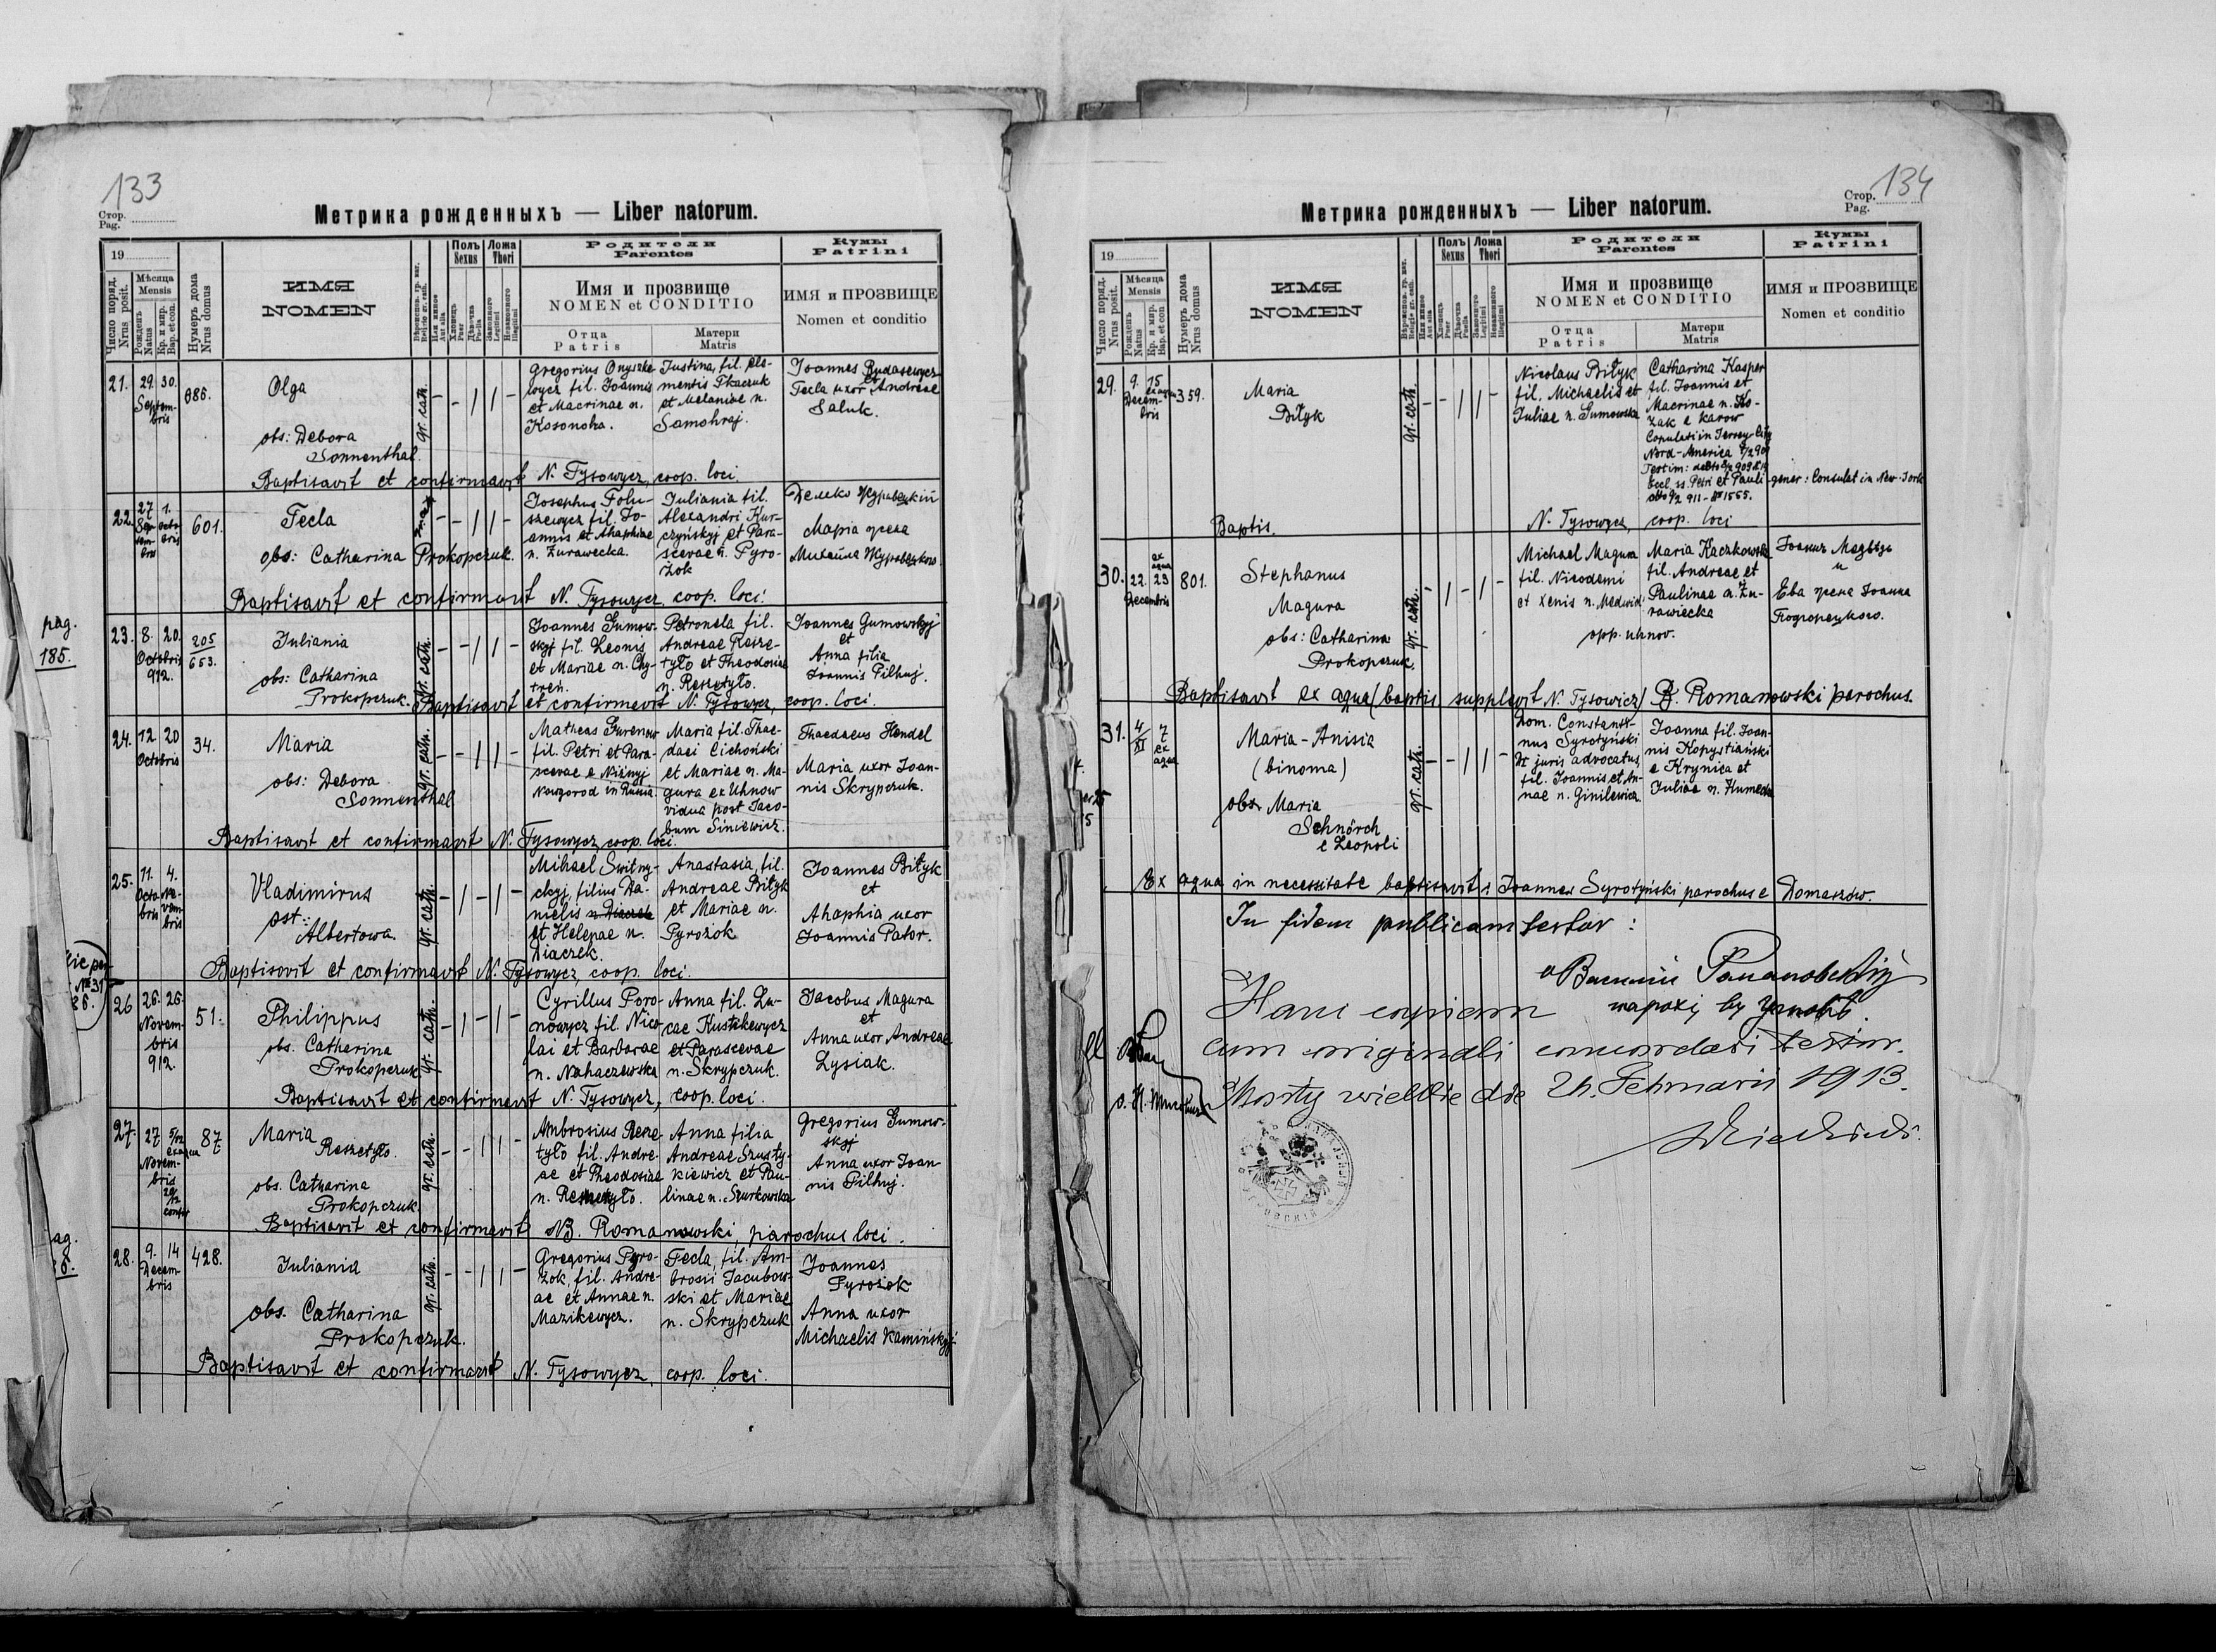 133
Стор.
Pag.
Метрика рожденныхъ — Liber natorum.
19
Число поряд.
Nrus posit.
Мѣсяца
Mensis
Рожденъ
Natus
Кр. и мир.
Bap. et con.
Нумеръ дома
Nrus domus
ИМЯ
NOMEN
Или инное
Aut alia
Полъ
Sexus
Хлопецъ
Puer
Дѣвочка
Puella
Ложа
Thori
Законного
Legitimi
Незаконного
Illegitimi
Родители
Parentes
Имя и прозвище
NOMEN et CONDITIO
Отца
Patris
Матери
Matris
Кумы
Patrini
ИМЯ и ПРОЗВИЩЕ
Nomen et conditio
21. 29. 30.
Septem-
bris
686.
Olga
obs: Debora
Sonnenthal.
gr. cath.
Gregorius Onyszke-
wycz fil. Joannis
et Macrinae n.
Kosonoha.
Justina, fil. Cle-
mentis Tkaczuk
et Melaniae n.
Samohraj.
Joannes Rudasewycz
et
Tecla uxor Andreae
Saluk.
Baptisavit et confirmavit N. Tysowycz, coop. loci.
22. 27 1.
Sep-
tem-
bris
Octo-
bris
601.
Tecla
obs: Catharina Prokopczuk.
Josephus Folu-
szewycz fil. Jo-
annis et Ahaphiae
n. Żurawecka.
Juliania fil.
Alexandri Kur-
czyńskyj et Para-
scevae n. Pyro-
żok
Журавецкій
Марія жена
Михаила Журавецкого
Baptisavit et confirmavit N. Tysowycz, coop. loci.
pag.
185.
23. 8. 20.
Octobris
912.
205
653.
Juliania
obs: Catharina
Prokopczuk.
gr. cath.
Joannes Gumow-
skyj fil. Leonis
et Mariae n. Chy-
treń.
Petronela fil.
Andreae Resze-
tyło et Theodosiae
n. Reszetyło.
Joannes Gumowskyj
et
Anna filia
Joannis Pilhuj.
Baptisavit et confirmavit N. Tysowycz, coop. loci.
24. 12. 20
Octobris
34.
Maria
obs: Debora
Sonnenthal
gr. cath.
Matheas Gurenow
fil. Petri et Para-
scevae e Niżnyj
Nowgorod in Russia.
Maria fil. Thae-
daei Cichoński
et Mariae n. Ma-
gura ex Uhnow
vidua post Jaco-
bum Siniewicz.
Thaedaeus Hendel
Maria uxor Joan-
nis Skrypczuk.
Baptisavit et confirmavit N. Tysowycz, coop. loci.
25. 11. 4.
Octo-
bris
No-
vem-
bris
Vladimirus
ost:
Albertowa.
gr. cath.
Mihael Switny-
ckyj, filius Da-
nielis n. Diaczek
et Helenae n.
Diaczek.
Anastasia, fil.
Andreae Biłyk
et Mariae n.
Pyrożok
Joannes Biłyk
et
Ahaphia uxor
Joannis Pator.
Baptisavit et confirmavit N. Tysowycz, coop. loci.
№ 31
26 26. 26.
Novem-
bris
912.
51.
Philippus
obs. Catharina
Prokopczuk
gr. cath.
Cyrillus Poro-
nowycz fil. Nico-
lai et Barbarae
n. Nahaczewska
Anna fil. Lu-
cae Kustekewycz
et Parascevae
n. Skrypczuk.
Jacobus Magura
et
Anna uxor Andreae
Lysiak.
Baptisavit et confirmavit N. Tysowycz, coop. loci.
27. 27 5/12
ex aqua
Novem-
bris
87
Maria
Reszetyło.
obs. Catharina
Prokopczuk.
gr. cath.
Ambrosius Resze
tyło fil. Andre-
ae et Theodosiae
n. Reszetyło.
Anna filia
Andreae Szusty-
kiewicz et Pau-
linae n. Szurkowska
Gregorius Gumow-
skyj
Anna uxor Joan
nis Pilhuj.
Baptisavit et confirmavit B. Romanowski, parochus loci.
28. 9. 14
Decem-
bris
428.
Juliania
obs. Catharina
Prokopczuk.
gr. cath.
Gregorius Pyro-
żok, fil. Andre-
ae et Annae n.
Mazikewycz.
Tecla, fil. Am-
brosii Jacubow-
ski et Mariae
n. Skrypczuk
Joannes
Pyrożok
Anna uxor
Michaelis Kamińskyj
Baptisavit et confirmavit N. Tysowycz, coop. loci.
134
Стор.
Pag.
Метрика рожденныхъ — Liber natorum.
19
Число поряд.
Nrus posit.
Мѣсяца
Mensis
Рожденъ
Natus
Кр. и мир.
Bap. et con.
Нумеръ дома
Nrus domus
ИМЯ
NOMEN
Или инное
Aut alia
Полъ
Sexus
Хлопецъ
Puer
Дѣвочка
Puella
Ложа
Thori
Законного
Legitimi
Незаконного
Illegitimi
Родители
Parentes
Имя и прозвище
NOMEN et CONDITIO
Отца
Patris
Матери
Matris
Кумы
Patrini
ИМЯ и ПРОЗВИЩЕ
Nomen et conditio
29. 9. 15
Decem-
bris
359.
Maria
Biłyk
gr. cath.
Nicolaus Biłyk
fil. Michaelis et
Juliae n. Gumowska
Catharina Kasper
fil. Joannis et
Macrinae n. Ko-
zak e Karow
Copulati in Jersey-City
Nord-America
Eccl. ss. Petri et Pauli
gener: Consulat in New-York
911 - № 1555.
Baptis. N. Tysowycz, coop. loci
30. 22. ex
aqua
23
Decembris
801.
Stephanus
Magura
obs: Catharina
Prokopczuk.
gr. cath.
Michael Magura
fil. Nicodemi
et Xenis n. Medwid
Maria Kaczkowska
fil. Andreae et
Paulinae n. Żu-
rawiecka
opp. Uhnov.
и
Ева жена Іоанна
Baptisavit ex aqua (baptis. supplevit N. Tysowicz) B. Romanowski parochus.
31. 4
XI
7
ex
aqua
Maria-Anisia
(binoma)
obs. Maria
Schnörch
e Leopoli
gr. cath.
Dom. Constanti-
nus Syrotyński
Dr juris advocatus,
fil. Joannis et An-
nae n. Ginilewicz.
Joanna fil. Joan-
nis Kopystiański
e Krynica et
Juliae n. Humecka
Ex aqua in necessitate baptisavit: Joannes Syrotyński parochus e Domaszów.
In fidem publicam testor:
Hanc copiam
cum originali concordari testor.
Mosty wielkie die 26. Februarii 1913.